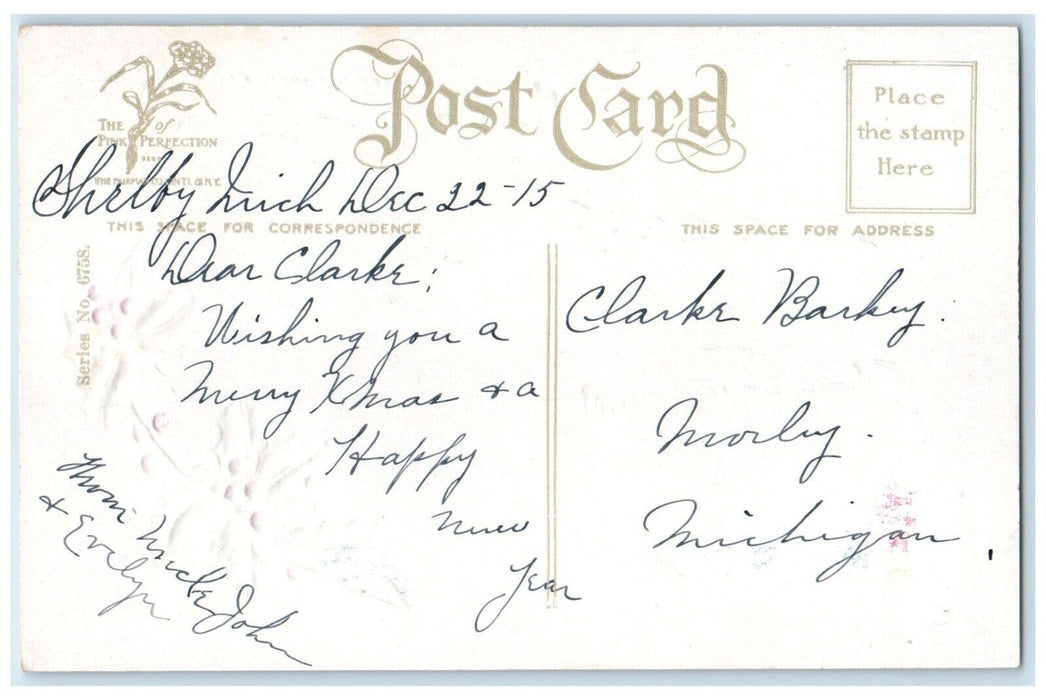 Post Card
THE of
PINK PERFECTION
THE FAIRMAN CO. CINTI. & N.Y.
Place
the stamp
Here
Shelby Mich Dec 22-15
THIS SPACE FOR CORRESPONDENCE
THIS SPACE FOR ADDRESS
Series No. 6758.
Dear Clarke;
Wishing you a
Merry XMas & a
Happy
New
Year
From Uncle John
& Evelyn
Clarke Barkey.
Morley.
Michigan.